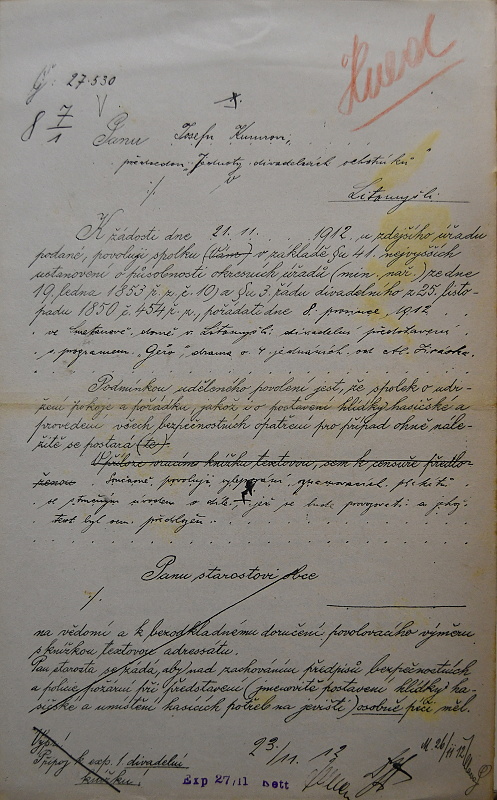 Č: 27.530
8 7/1
Ihned
Panu Josefu
předsedovi "Jednoty divadelních ochotníků"
v
Litomyšli.
K žádosti dne 21. 11. 1912 u zdejšího úřadu
podané, povoluji spolku (Vám) v základě §u 41. nejvyšších
ustanovení o působnosti okresních úřadů (min. nař.) ze dne
19. ledna 1853 ř. z. č. 10) a §u 3. řádu divadelního z 25. listo-
padu 1850 č. 454 ř. z., pořádati dne 8. prosince 1912
ve Smetanově domě v Litomyšli divadelní představení
s programem "Gero" drama o 4 jednáních od Al. Jiráska.
Podmínkou uděleného povolení jest, že spolek o udr-
žení pokoje a pořádku, jakož i o postavení hlídky hasičské a
provedení všech bezpečnostních opatření pro případ ohně nále-
žitě se postará (te).
V příloze vracím knížku textovou, sem k censuře předlo-
ženou. Současně povoluji vylepování plakátů
se
text byl sem předložen.
Panu starostovi obce
na vědomí a k bezodkladnému doručení povolovacího výměru
s knížkou textovou adressátu.
Pan starosta se žádá, aby nad zachováním předpisů bezpečnostních
a policie požární při představení (jmenovitě postavení hlídky ha-
sičské a umístění hasicích potřeb na jevišti) osobně péči měl.
Připoj k exp. 1 divadelní
knížku.
23/11 12
Exp 27/11 Dett
M. 26/11 12